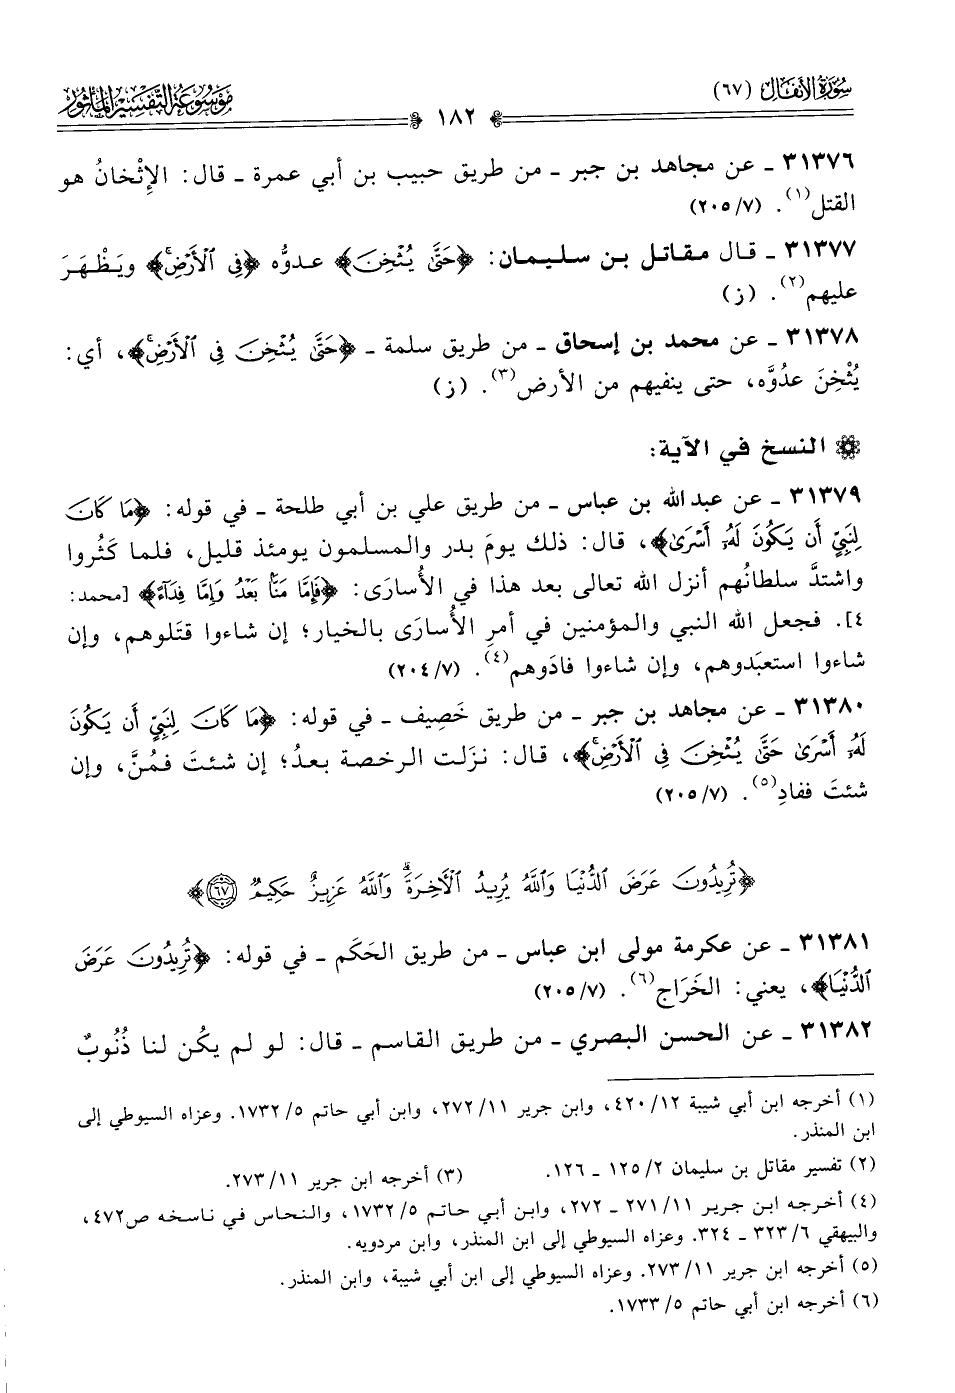 سُورَةُ الأَنفَال (٦٧)
١٨٢
مَوْسُوعَةُ التَّفْسِيرِ المَأْثُور
٣١٣٧٦ ـ عن مجاهد بن جبر ـ من طريق حبيب بن أبي عمرة ـ قال: الإثْخانُ هو
القتل(١). (٢٠٥/٧)
٣١٣٧٧ ـ قال مقاتل بن سليمان: ﴿حَتَّىٰ يُثْخِنَ﴾ عدوَّه ﴿فِي ٱلْأَرْضِۚ﴾ ويَظْهَرَ
عليهم(٢). (ز)
٣١٣٧٨ ـ عن محمد بن إسحاق ـ من طريق سلمة ـ ﴿حَتَّىٰ يُثْخِنَ فِي ٱلْأَرْضِۚ﴾، أي:
يُثْخِنَ عدُوَّه، حتى ينفيهم من الأرض(٣). (ز)
النسخ في الآية:
٣١٣٧٩ ـ عن عبد الله بن عباس ـ من طريق علي بن أبي طلحة ـ في قوله: ﴿مَا كَانَ
لِنَبِيٍّ أَن يَكُونَ لَهُۥٓ أَسْرَىٰ﴾، قال: ذلك يومَ بدر والمسلمون يومئذ قليل، فلما كَثُروا
واشتدَّ سلطانُهم أنزل الله تعالى بعد هذا في الأُسارَى: ﴿فَإِمَّا مَنًّۢا بَعْدُ وَإِمَّا فِدَآءً﴾ [محمد:
٤]. فجعل الله النبي والمؤمنين في أمرِ الأُسارَى بالخيار؛ إن شاءوا قتَلوهم، وإن
شاءوا استعبَدوهم، وإن شاءوا فادَوهم(٤). (٢٠٤/٧)
٣١٣٨٠ ـ عن مجاهد بن جبر ـ من طريق خَصِيف ـ في قوله: ﴿مَا كَانَ لِنَبِيٍّ أَن يَكُونَ
لَهُۥٓ أَسْرَىٰ حَتَّىٰ يُثْخِنَ فِي ٱلْأَرْضِۚ﴾، قال: نزَلت الرخصة بعدُ؛ إن شئتَ فمُنَّ، وإن
شئتَ ففادِ(٥). (٢٠٥/٧)
﴿تُرِيدُونَ عَرَضَ ٱلدُّنْيَا وَٱللَّهُ يُرِيدُ ٱلْآخِرَةَۗ وَٱللَّهُ عَزِيزٌ حَكِيمٌ ٦٧﴾
٣١٣٨١ ـ عن عكرمة مولى ابن عباس ـ من طريق الحَكَم ـ في قوله: ﴿تُرِيدُونَ عَرَضَ
ٱلدُّنْيَا﴾، يعني: الخَرَاج(٦). (٢٠٥/٧)
٣١٣٨٢ ـ عن الحسن البصري ـ من طريق القاسم ـ قال: لو لم يكُن لنا ذُنُوبٌ
(١) أخرجه ابن أبي شيبة ٤٢٠/١٢، وابن جرير ٢٧٢/١١، وابن أبي حاتم ١٧٣٢/٥. وعزاه السيوطي إلى
ابن المنذر.
(٢) تفسير مقاتل بن سليمان ١٢٥/٢ ـ ١٢٦. (٣) أخرجه ابن جرير ٢٧٣/١١.
(٤) أخرجه ابن جرير ٢٧١/١١ ـ ٢٧٢، وابن أبي حاتم ١٧٣٢/٥، والنحاس في ناسخه ص٤٧٢،
والبيهقي ٣٢٣/٦ ـ ٣٢٤. وعزاه السيوطي إلى ابن المنذر، وابن مردويه.
(٥) أخرجه ابن جرير ٢٧٣/١١. وعزاه السيوطي إلى ابن أبي شيبة، وابن المنذر.
(٦) أخرجه ابن أبي حاتم ١٧٣٣/٥.